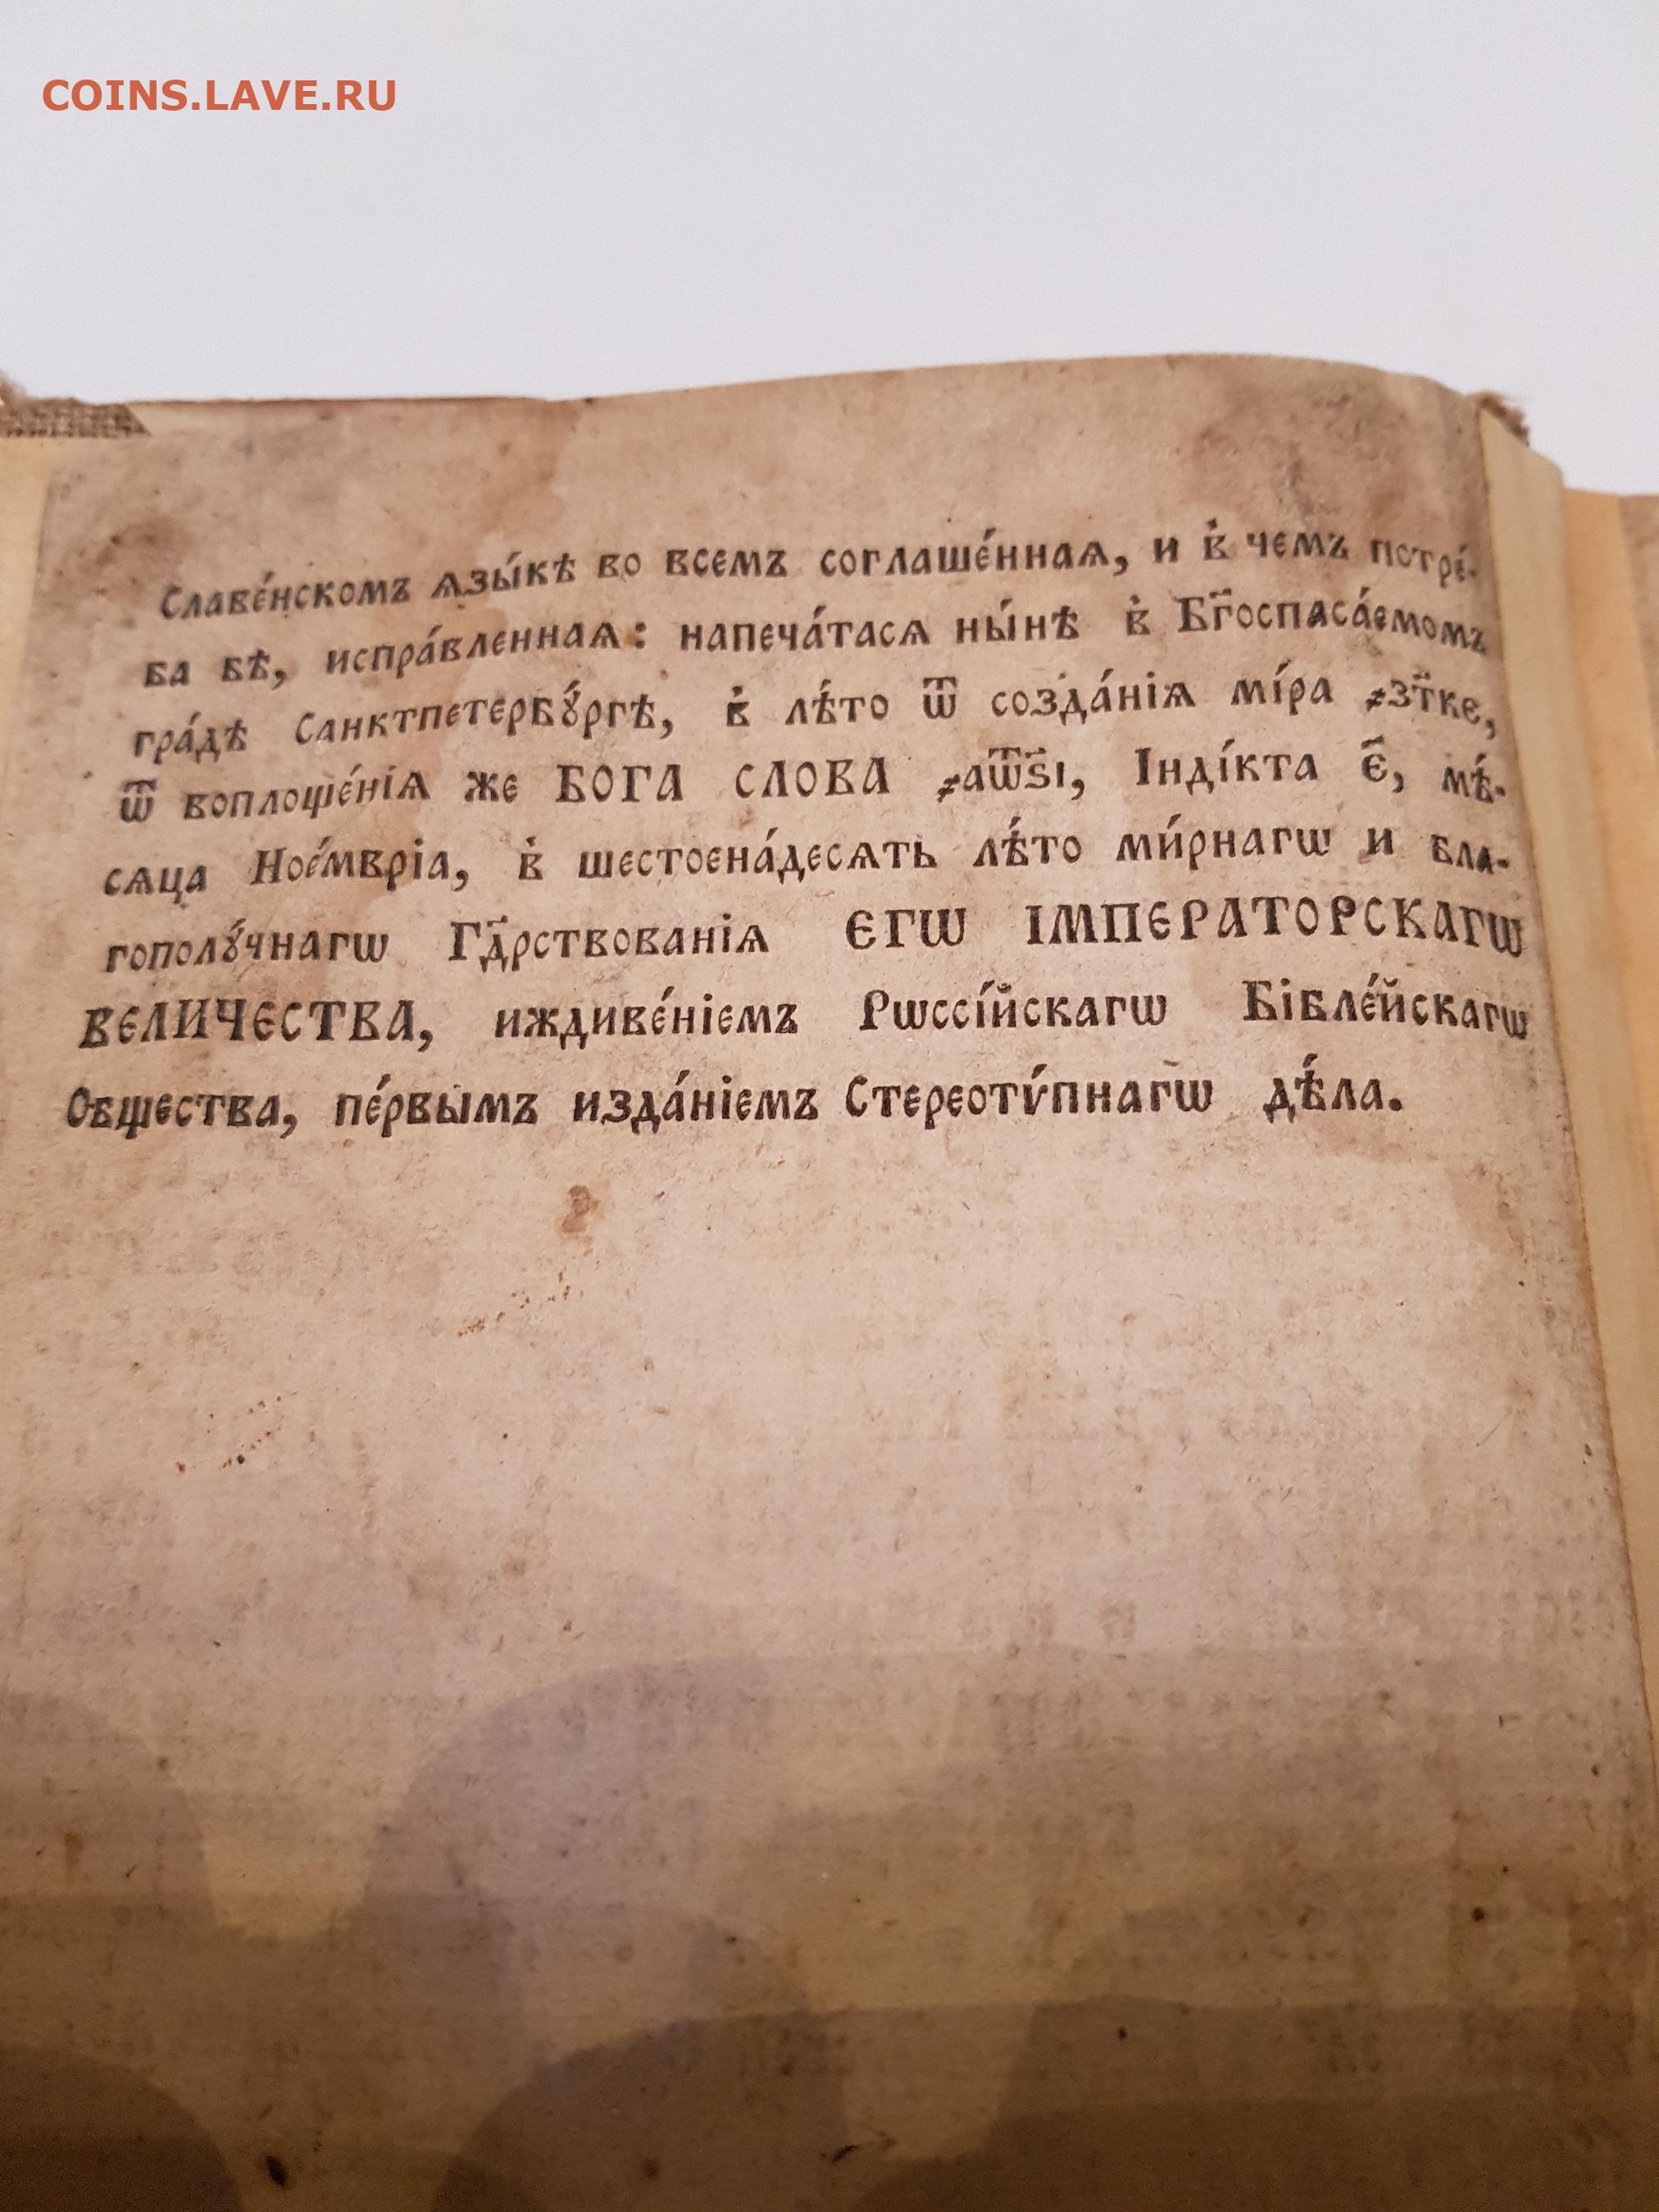 COINS.LAVE.RU
Славе́нскомъ ѧзы́кѣ во всемъ соглаше́ннаѧ, и в̾ чемъ потре́-
ба бѣ, испра́вленнаѧ: напеча́тасѧ ны́нѣ в̾ Бг҃оспаса́емомъ
гра́дѣ Санктпетербꙋ́ргѣ, в̾ лѣ́то ѿ созда́нїѧ мі́ра ҂зт҃ке,
ѿ воплоще́нїѧ же БОГА СЛОВА ҂аѿ҃ѕі, Інді́кта є҃, мѣ́-
сѧца Ное́мврїа, в̾ шестоена́десѧть лѣ́то ми́рнагѡ и бла-
гополꙋ́чнагѡ Гд҃рствованїѧ ЄГѠ ІМПЕРАТОРСКАГѠ
ВЕЛИЧЕСТВА, иждиве́нїемъ Рѡссі́йскагѡ Бібле́йскагѡ
Общества, пе́рвымъ изда́нїемъ Стереотѵ́пнагѡ дѣ́ла.